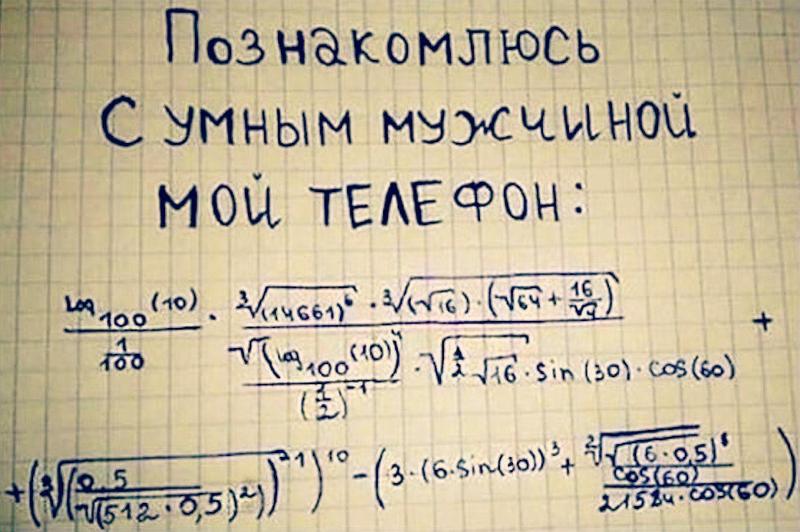 Познакомлюсь
с умным мужчиной
мой телефон:
log₁₀₀(10) / (1/100) · ∛(14661)⁶ · ∛(√16) · (√64 + 16/√4) / √(log₁₀₀(10))⁴ / (1/2)⁻¹ · √(1/2 √16) · sin(30) · cos(60) +
+ (∛(0.5 / √(512 · 0,5)²))²¹)¹⁰ − (3 · (6 · sin(30))³ + √√(6 · 0,5)⁸ / cos(60) / 21584 · cos(60))